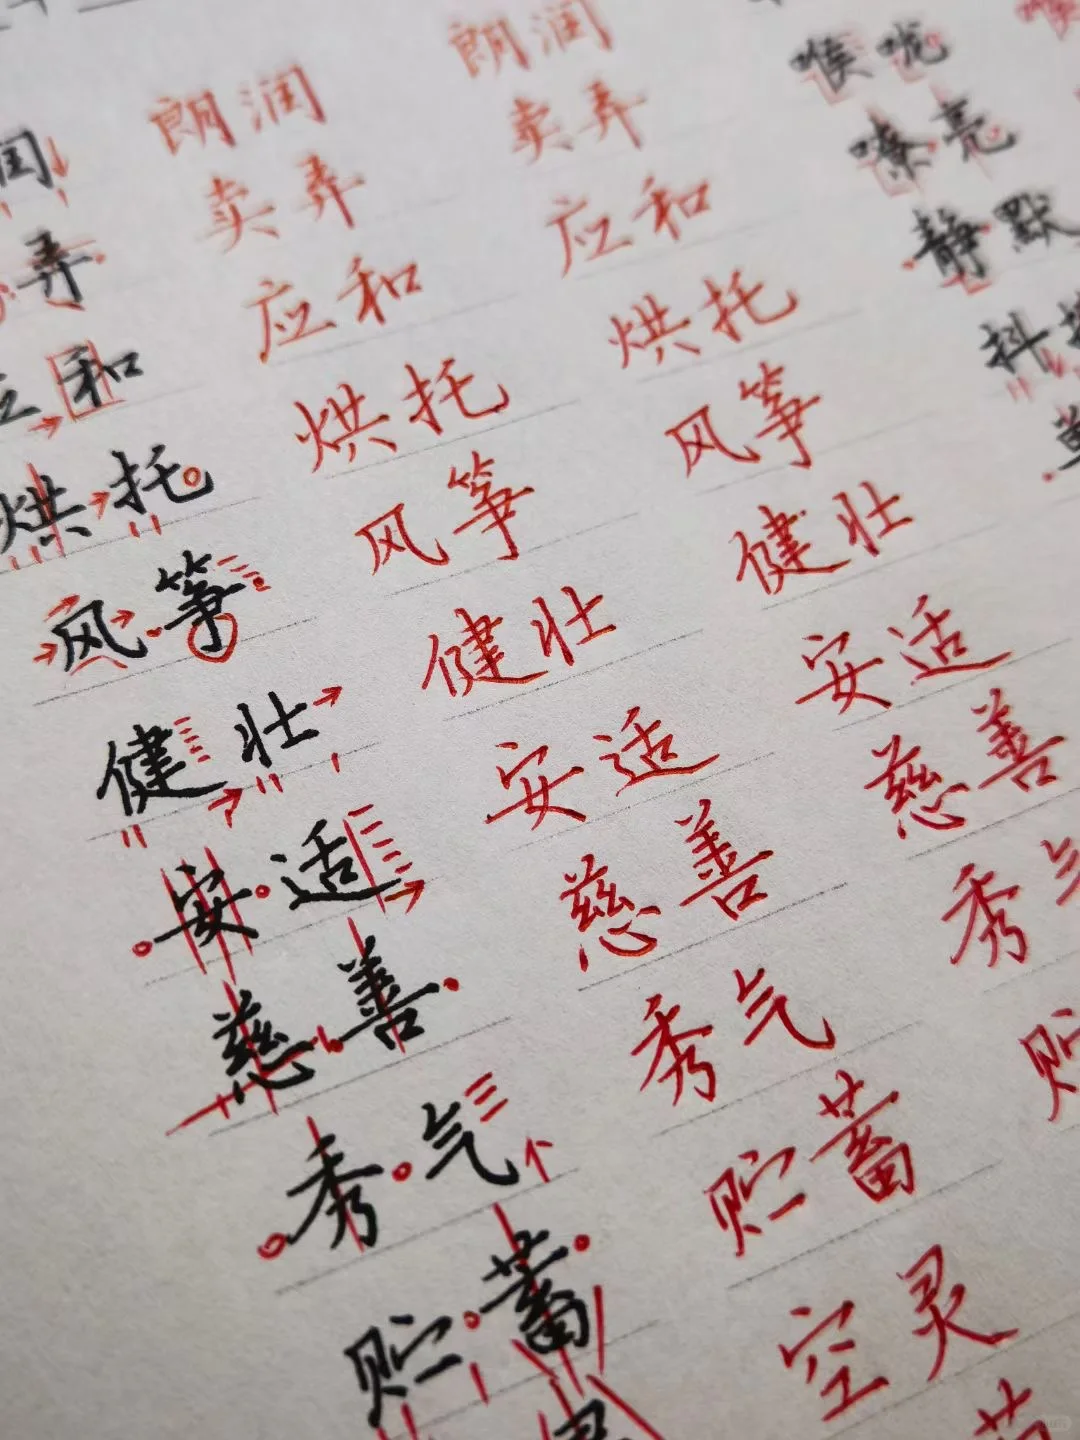 润 朗润 朗润 喉咙
弄 卖弄 卖弄 嘹亮
应和 应和 应和 静默
烘托 烘托 烘托 抖
风筝 风筝 风筝
健壮 健壮 健壮
安适 安适 安适
慈善 慈善 慈善
秀气 秀气 秀气
贮蓄 贮蓄 贮
空灵